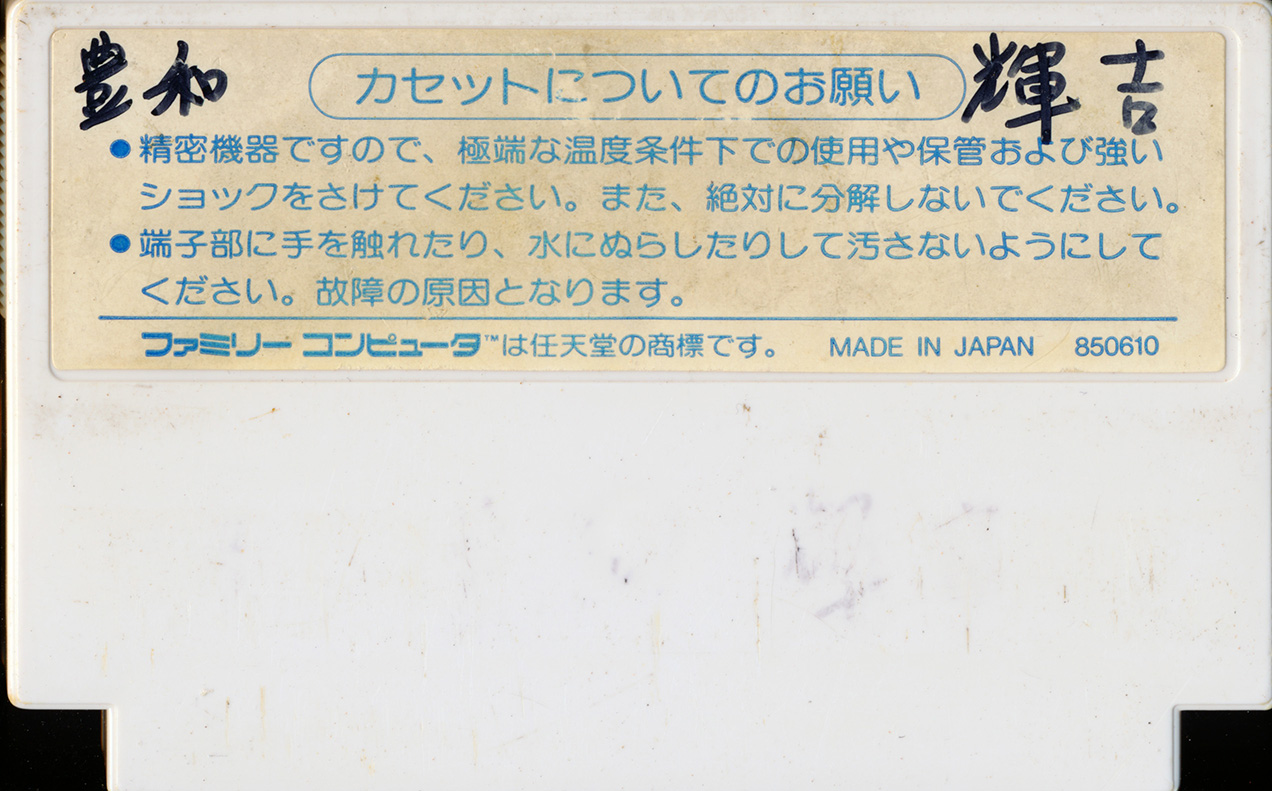 豊和 カセットについてのお願い 輝吉
●精密機器ですので、極端な温度条件下での使用や保管および強い
ショックをさけてください。また、絶対に分解しないでください。
●端子部に手を触れたり、水にぬらしたりして汚さないようにして
ください。故障の原因となります。
ファミリー コンピュータ™は任天堂の商標です。 MADE IN JAPAN 850610